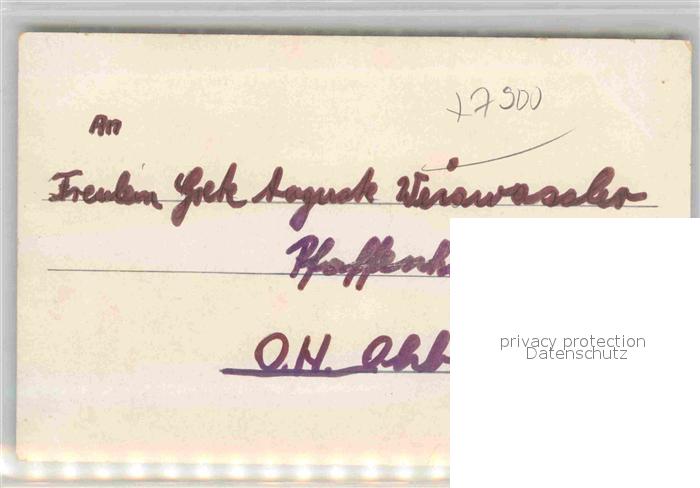 x7900
An
Freulein Grete Auguste Weiswasser
Pfaffenh
O.H.
privacy protection
Datenschutz